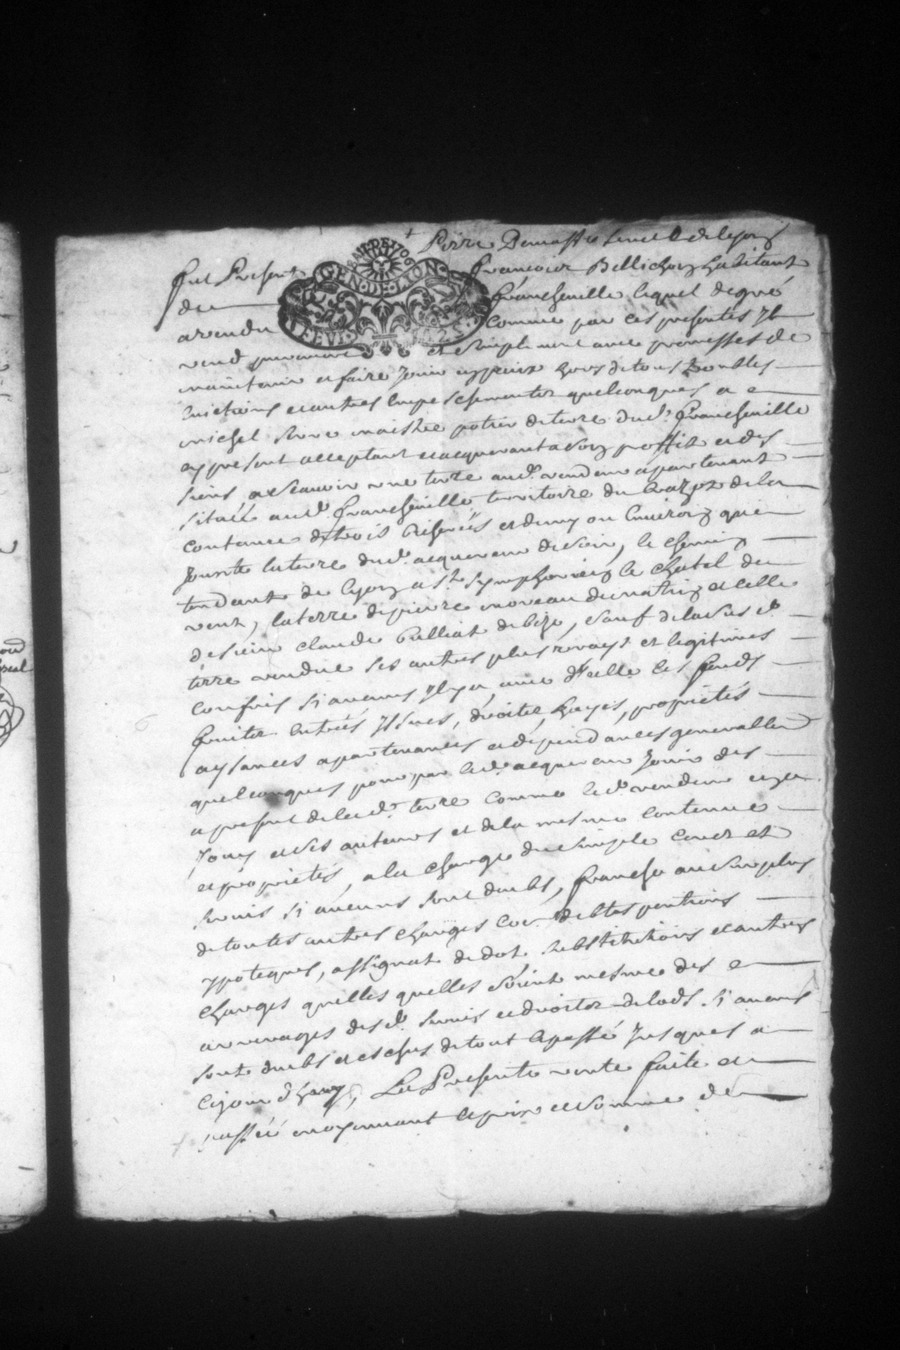 Pierre
fut Present francois Bellichon habitant
du francheville lequel de gré
a vendu comme par ces presentes Il
vend purement et simplement avec promesses de
maintenir et faire Jouir hors de tous troubles
evictions et autres empeschements quelconques a
michel maistre potier de terre dud. francheville
ay present acceptant et acquerant a son proffit et des
siens a scavoir une terre aud. vendeur apartenant
située aud. francheville territoire du de la
contance de trois bicherées et demy ou environ que
Jouxte la terre dud. acquereur de soir, le chemin
tendant de lyon a st. symphorien le chatel de
vent, la terre de pierre moreau de matin et celle
de sieur claude Palliat de bize, sauf de lad. susd.
terre vendue ses autres plus vrays et legitimes
confins si aucuns Il y a avec d'icelle ses fonds
fruits entrées Issues, droits, hayes, proprietés
aysances apartenances et dependances generalles
quelconques pour par led. acquereur Jouir des
a present de lad. terre comme led. vendeur en a
Jouy et ses auteurs et de la mesme contenue
et proprietés, a la charge du simple cens et
servis si aucuns sont deubs, franche au surplus
de toutes autres charges debtes pentions
ypoteques, assignat de dot substitutions et autres
charges quelles quelles soient mesme des
arrerages desd. servis et droits de lods si aucuns
sont deubs et eschus de tout le passé Jusques a
ce jour d'huy, La Presente vente faite et
passée moyennant le prix et somme de
GEN·DE·LYON